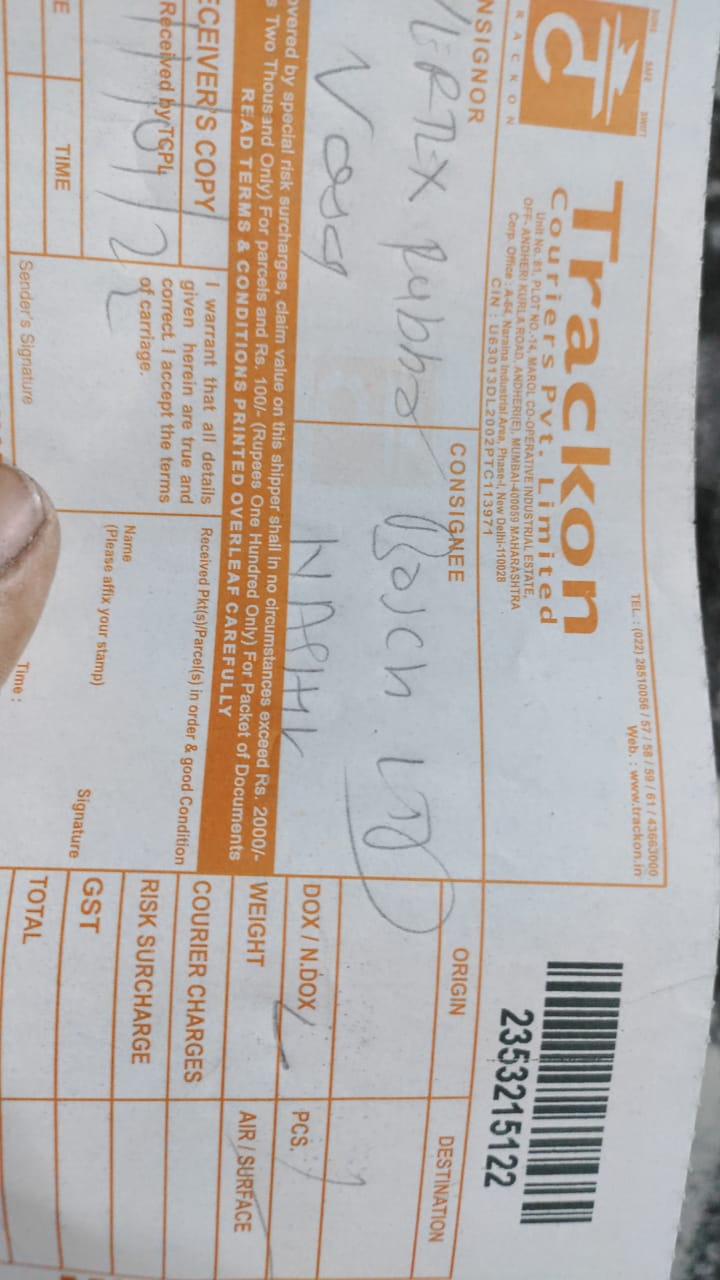 SAFE
SWIFT
TRACKON
Trackon
Couriers Pvt. Limited
Unit No. 81, PLOT NO.-14, MAROL CO-OPERATIVE INDUSTRIAL ESTATE,
OFF- ANDHERI KURLA ROAD, ANDHERI(E), MUMBAI-400059 MAHARASHTRA
Corp. Office : A-64, Naraina Industrial Area, Phase-I, New Delhi-110028
CIN : U63013DL2002PTC113971
TEL. : (022) 28510056 / 57 / 58 / 59 / 61 / 43663000
Web. : www.trackon.in
2353215122
NSIGNOR
CONSIGNEE
ORIGIN
DESTINATION
Bosch LTD
DOX / N.DOX
PCS.
WEIGHT
AIR / SURFACE
COURIER CHARGES
RISK SURCHARGE
GST
TOTAL
overed by special risk surcharges, claim value on this shipper shall in no circumstances exceed Rs. 2000/-
s Two Thousand Only) For parcels and Rs. 100/- (Rupees One Hundred Only) For Packet of Documents
READ TERMS & CONDITIONS PRINTED OVERLEAF CAREFULLY
ECEIVER'S COPY
Received by TCPL
TIME
I warrant that all details
given herein are true and
correct. I accept the terms
of carriage.
Sender's Signature
Received Pkt(s)/Parcel(s) in order & good Condition
Name
(Please affix your stamp)
Signature
Time :